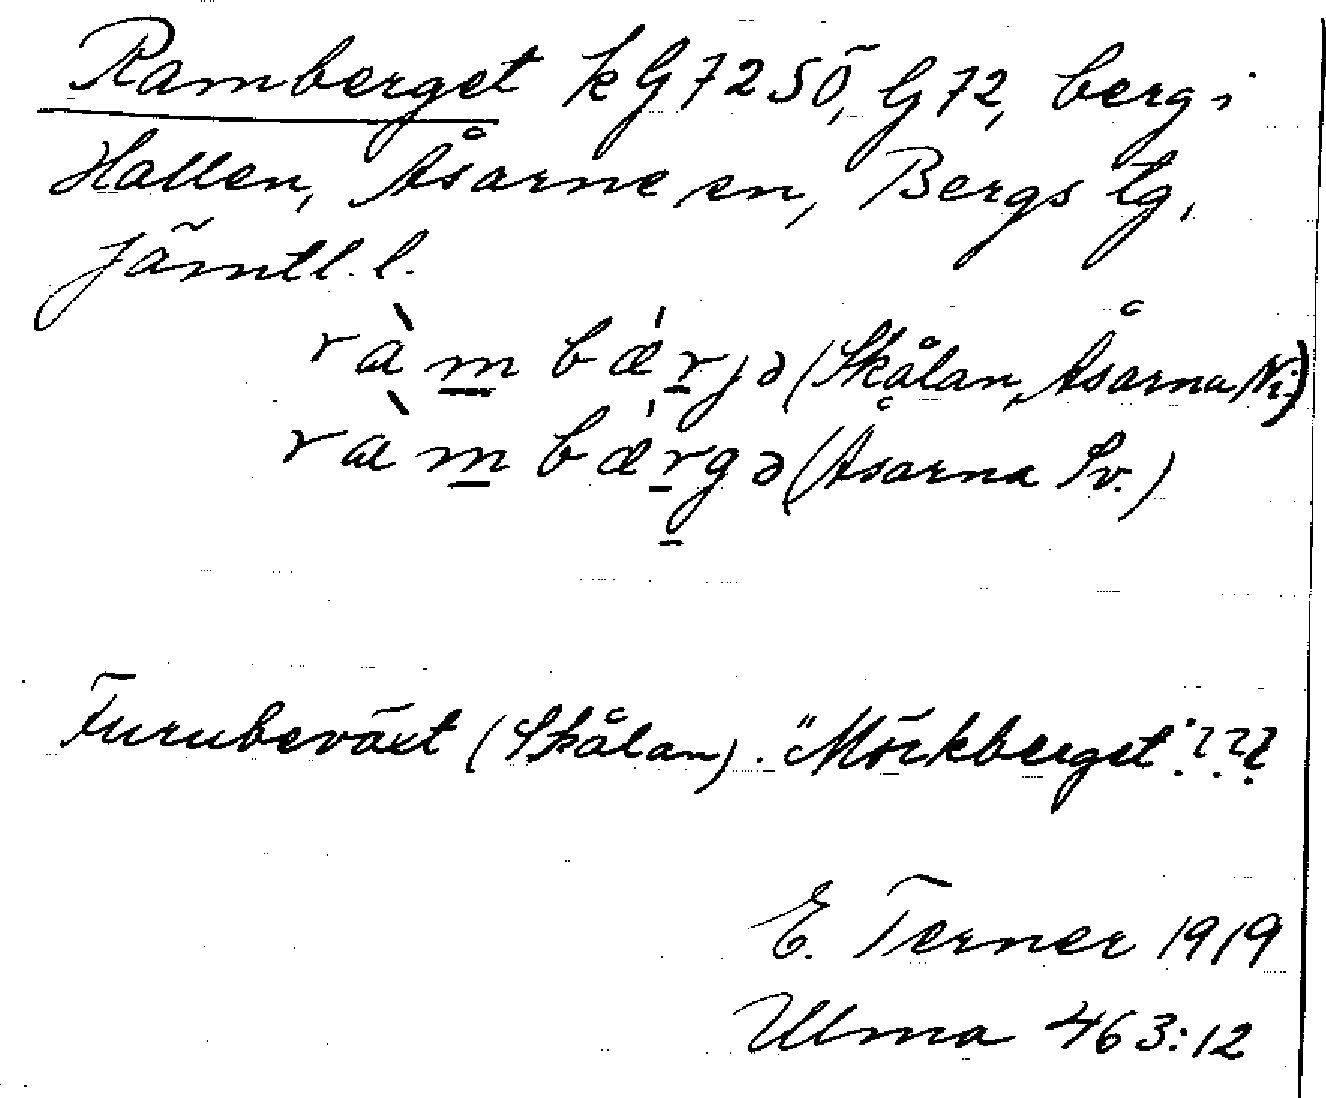 Ramberget kG72SÖ, G72, berg i
Hallen, Åsarne sn, Bergs tg,
Jämtl. l.
ràm bǽrjə (Skålan, Åsarna Ni.)
ràm bǽrgə (Åsarna Sv.)
Furubeväxt (Skålan). "Mörkberget"???
E. Terner 1919
Ulma 463:12